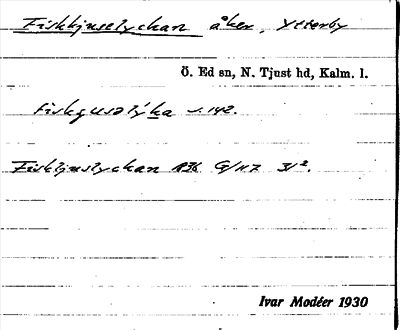 Fiskljuselyckan åker, Ytterby
Ö. Ed sn, N. Tjust hd, Kalm. l.
s. 142.
Fiskljuslyckan 1836 G/117 31².
Ivar Modéer 1930